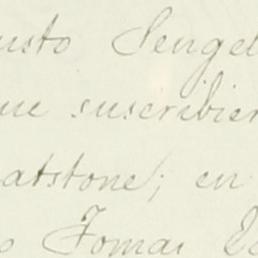 usto Sengel
ue suscribier
atstone; en
o Tomas